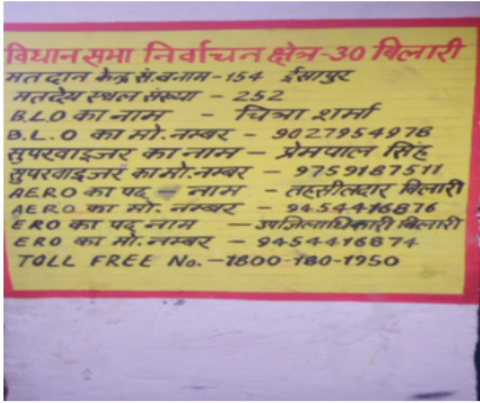 विधान सभा निर्वाचन क्षेत्र-30 बिलारी
मतदान केन्द्र सं.व नाम-154 ईसापुर
मतदेय स्थल संख्या - 252
B.L.O का नाम - चित्रा शर्मा
B.L.O का मो. नम्बर - 9027954976
सुपरवाइजर का नाम - प्रेमपाल सिंह
सुपरवाइजर का मो.नम्बर - 9759187511
AERO का पद - नाम - तहसीलदार बिलारी
AERO का मो. नम्बर - 9454416876
ERO का पद नाम - उपजिलाधिकारी बिलारी
ERO का मो. नम्बर - 9454416874
TOLL FREE No. -1800-180-1950